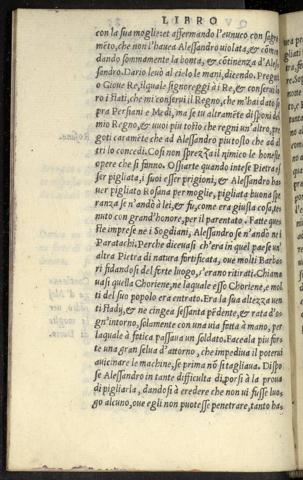 LIBRO
con la sua moglie: et affermando l'eunuco con sagra
mẽto, che non l'hauea Alessandro uiolata, & cõmen
dando sommamente la bonta, & cõtinẽza d'Ales
sandro. Dario leuò al cielo le mani, dicendo. Prego
o Gioue Re, ilquale signoreggi a i Re, & conserui lo
ro i stati, che mi conserui il Regno, che m'hai dato so
pra Persiani e Medi, ma se tu altramẽte disponi del
mio Regno, & uuoi piu tosto che regni un'altro, pre
goti caramẽte che ad Alessandro piu tosto che ad al
tri lo concedi. Cosi non sprezza il nimico le honeste
opere che si fanno. Ossiarte quando intese Pietra es
ser pigliata, i suoi esser prigioni, & Alessandro ha
uer pigliato Rosana per moglie, pigliata buona spe
ranza se n'andò a lei, & fu, come era giusta cosa, te
nuto con grand'honore, per il parentato. Fatte que
ste imprese ne i Sogdiani, Alessandro se n'andò ne i
Paratachi. Perche diceuasi ch'era in quel paese un'
altra Pietra di natura fortificata, oue molti Barba
ri fidandosi del forte luogo, s'erano ritirati. Chiama
uasi quella Choriene, ne laquale esso Choriene, e mol
ti del suo popolo era entrato. Era la sua altezza uen
ti stadij, & ne cingea sessanta pẽdente, & rata d'o
gn'intorno, solamente con una uia fatta à mano, per
laquale à fatica passaua un soldato. Faceala piu for
te una gran selua d'attorno, che impediua il poterui
auicinare le machine, se prima nõ si tagliaua. Dispo
se Alessandro in tante difficulta di porsi à la proua
di pigliarla, dandosi à credere che non ui fusse luo
go alcuno, oue egli non puotesse penetrare, tanto ha-